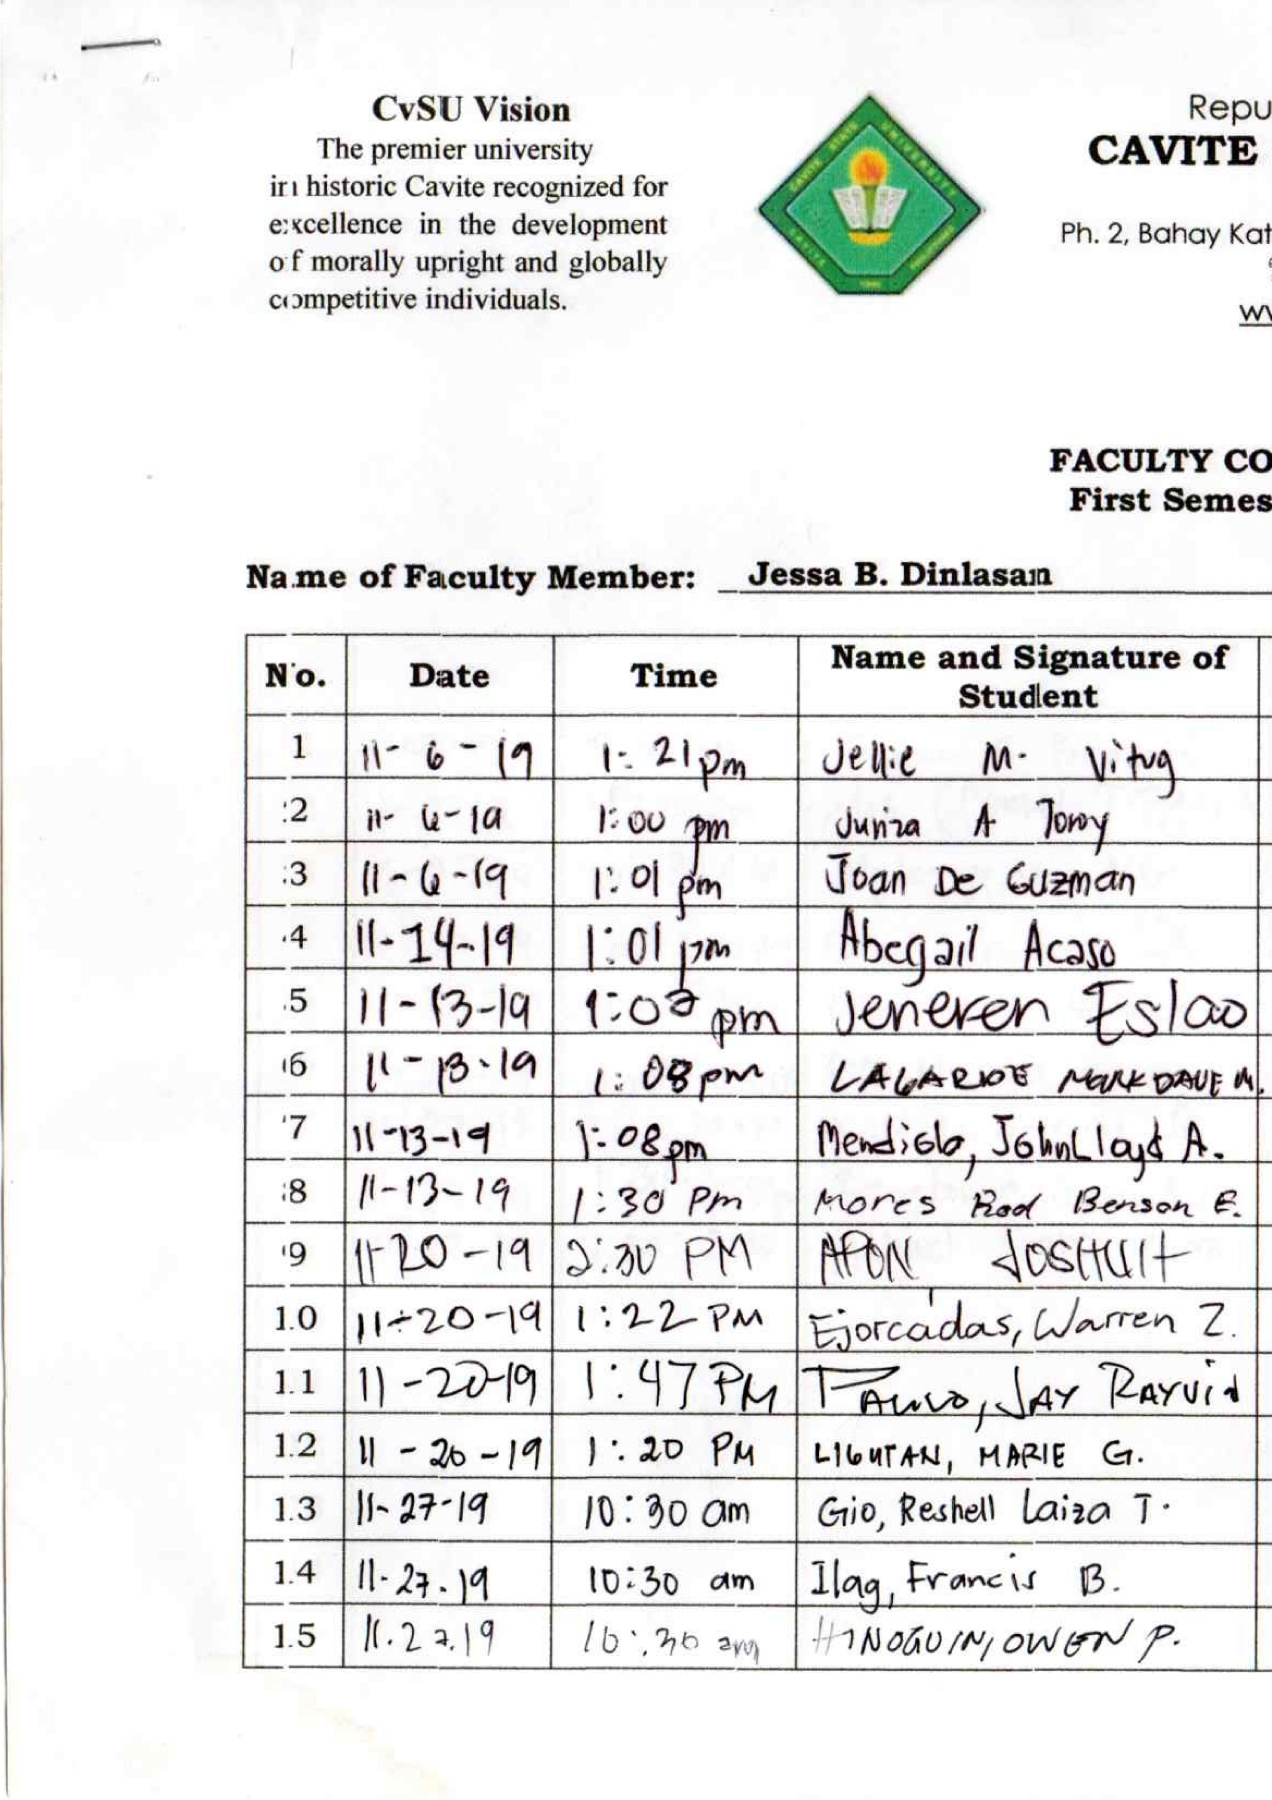 CvSU Vision
The premier university
in historic Cavite recognized for
excellence in the development
of morally upright and globally
competitive individuals.
Repu
CAVITE
Ph. 2, Bahay Kat
CAVITE STATE UNIVERSITY
FACULTY CO
First Semes
Name of Faculty Member: Jessa B. Dinlasan
No. Date Time Name and Signature of Student
1 11-6-19 1:21pm Jellie M. Vitug
2 11-6-19 1:00 pm A
3 11-6-19 1:01 pm Joan De Guzman
4 11-14-19 1:01 pm Abegail Acaso
5 11-13-19 pm Jeneren Eslao
6 11-13-19 1:08pm M.
7 11-13-19 1:08pm Mendiola, JohnLloyd A.
8 11-13-19 1:30 Pm Mores Rod Benson E.
9 11-20-19 2:30 PM APON
10 11-20-19 1:22 PM Ejorcadas, Warren Z.
11 11-20-19 1:47 PM JAY
12 11-20-19 1:20 PM LIGUTAN, MARIE G.
13 11-27-19 10:30 am Gio, Reshell Laiza T.
14 11-27-19 10:30 am Ilag, Francis B.
15 11.27.19 10:30 am HINOGUIN, OWEN P.